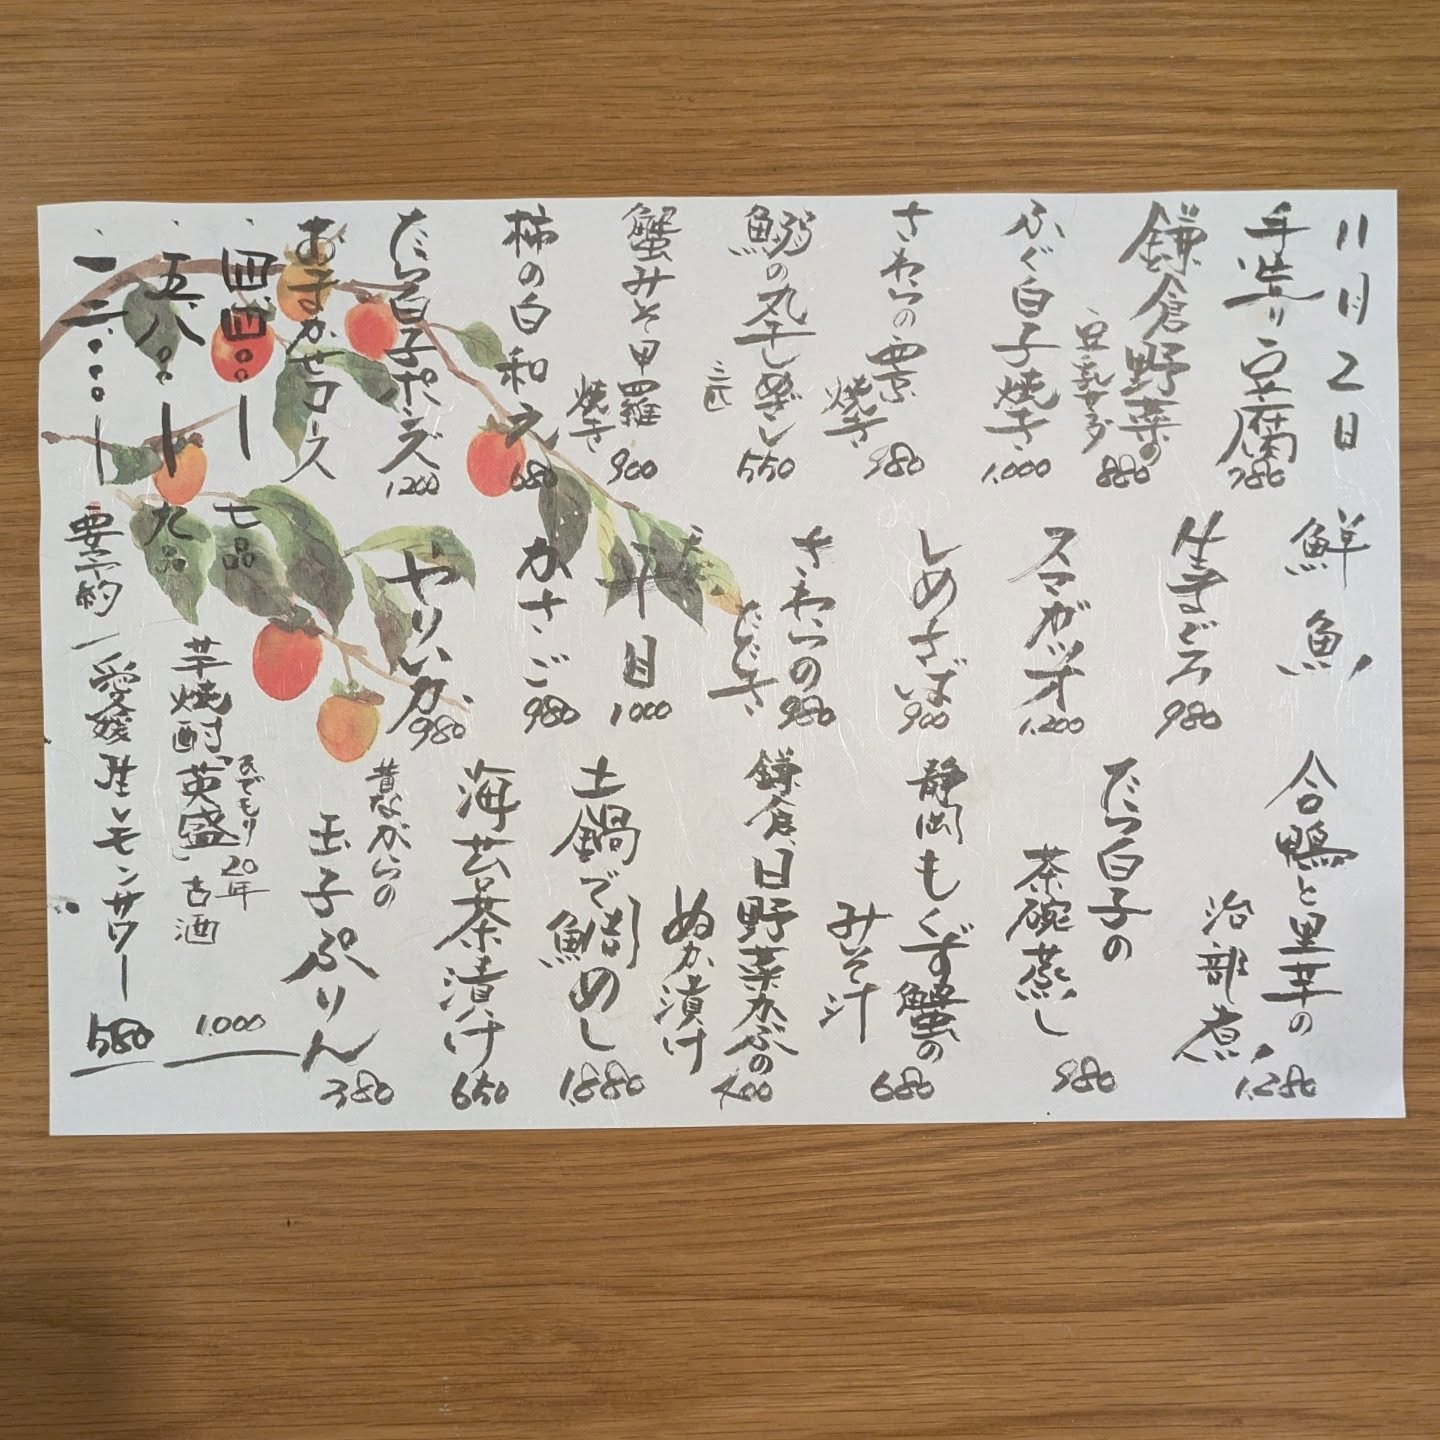 11月2日
手造り豆腐
780
鎌倉野菜の
豆乳サラダ
880
ふぐ白子焼き
1.000
さわらの西京
焼き
980
鰯の丸干しめざし
三匹
550
蟹みそ甲羅
焼き
900
柿の白和え
680
たら白子ポン酢
1200
おまかせコース
四.四〇〇ー 七品
五.八〇〇ー 九品
一二.〇〇〇ー 要予約
鮮魚
生まぐろ
980
スマガツオ
1.200
しめさば
900
さわらの
たたき
980
平目
1000
かさご
980
やりいか
980
合鴨と里芋の
治部煮
1.280
たら白子の
茶碗蒸し
980
静岡もくず蟹の
みそ汁
680
鎌倉、日野菜かぶの
ぬか漬け
土鍋で鯛めし
1.880
海苔茶漬け
650
昔ながらの
玉子ぷりん
380
芋焼酎「英盛」古酒
ひでもり 20年
1.000
愛媛産レモンサワー
580